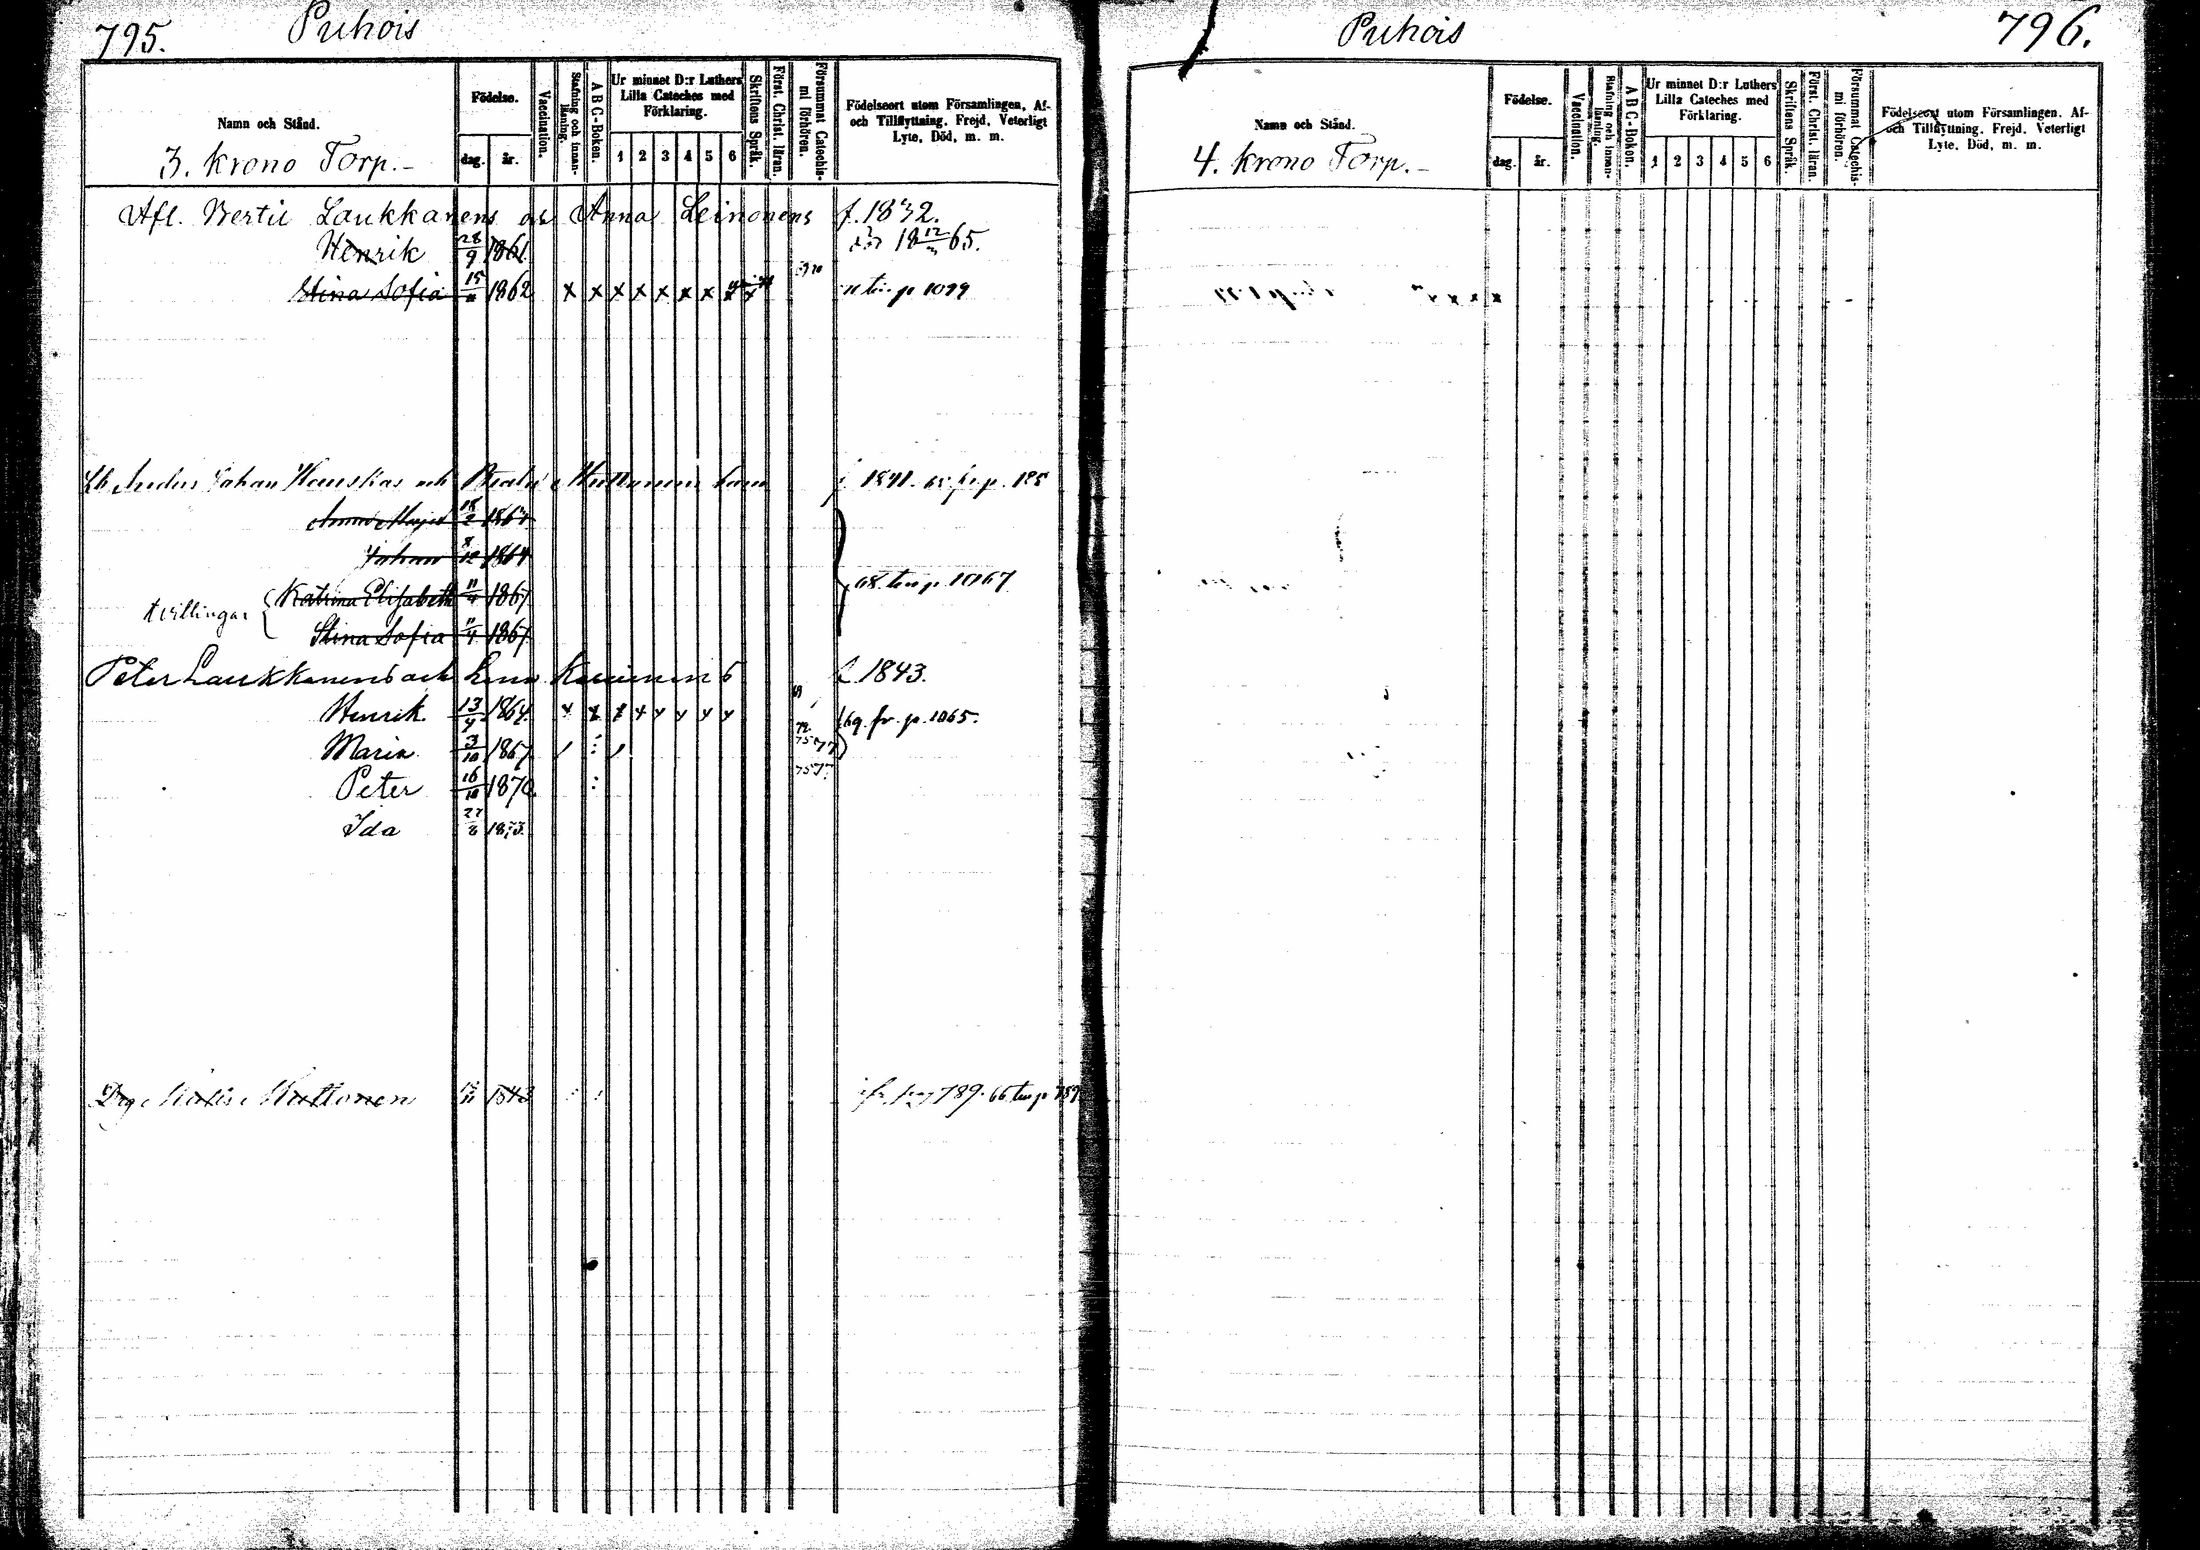 795. Puhois
Namn och Stånd.
3. Krono Torp.
Födelse.
dag. år.
Vaccination.
Stafning och innanläsning.
A B C-Boken.
Ur minnet D:r Luthers Lilla Cateches med Förklaring.
1 2 3 4 5 6
Skriftens Språk.
Först. Christ. läran.
Försummat Catechismi förhören.
Födelseort utom Församlingen, Af- och Tillflyttning, Frejd, Veterligt Lyte, Död, m. m.
Afl. Bertil Laukkanens och Anna Leinonens f. 1832.
Henrik 28/9 1861 död 18 12/3 65.
Stina Sofia 15/11 1862 x x x x x x x x x p 1099
Johan och barn
Anna Maja 18/2 1863
Johan 8/12 1864
68 tu p. 1067
tvillingar { Katrina Elisabeth 11/4 1867
Stina Sofia 11/4 1867
Peter Laukkanens och f. 1843.
Henrik 13/4 1864 x x x x x x x x 69. fr. p. 1065.
Maria 3/10 1867 72 75 77
Peter 16/10 1870 75 77
Ida 22/8 1873
Drg Huttonen 1843 fr. pag 789. 66 tu p 759
Puhois 796.
Namn och Stånd.
4. Krono Torp.
Födelse.
dag. år.
Vaccination.
Stafning och innanläsning.
A B C-Boken.
Ur minnet D:r Luthers Lilla Cateches med Förklaring.
1 2 3 4 5 6
Skriftens Språk.
Först. Christ. läran.
Försummat Catechismi förhören.
Födelseort utom Församlingen, Af- och Tillflyttning, Frejd, Veterligt Lyte, Död, m. m.